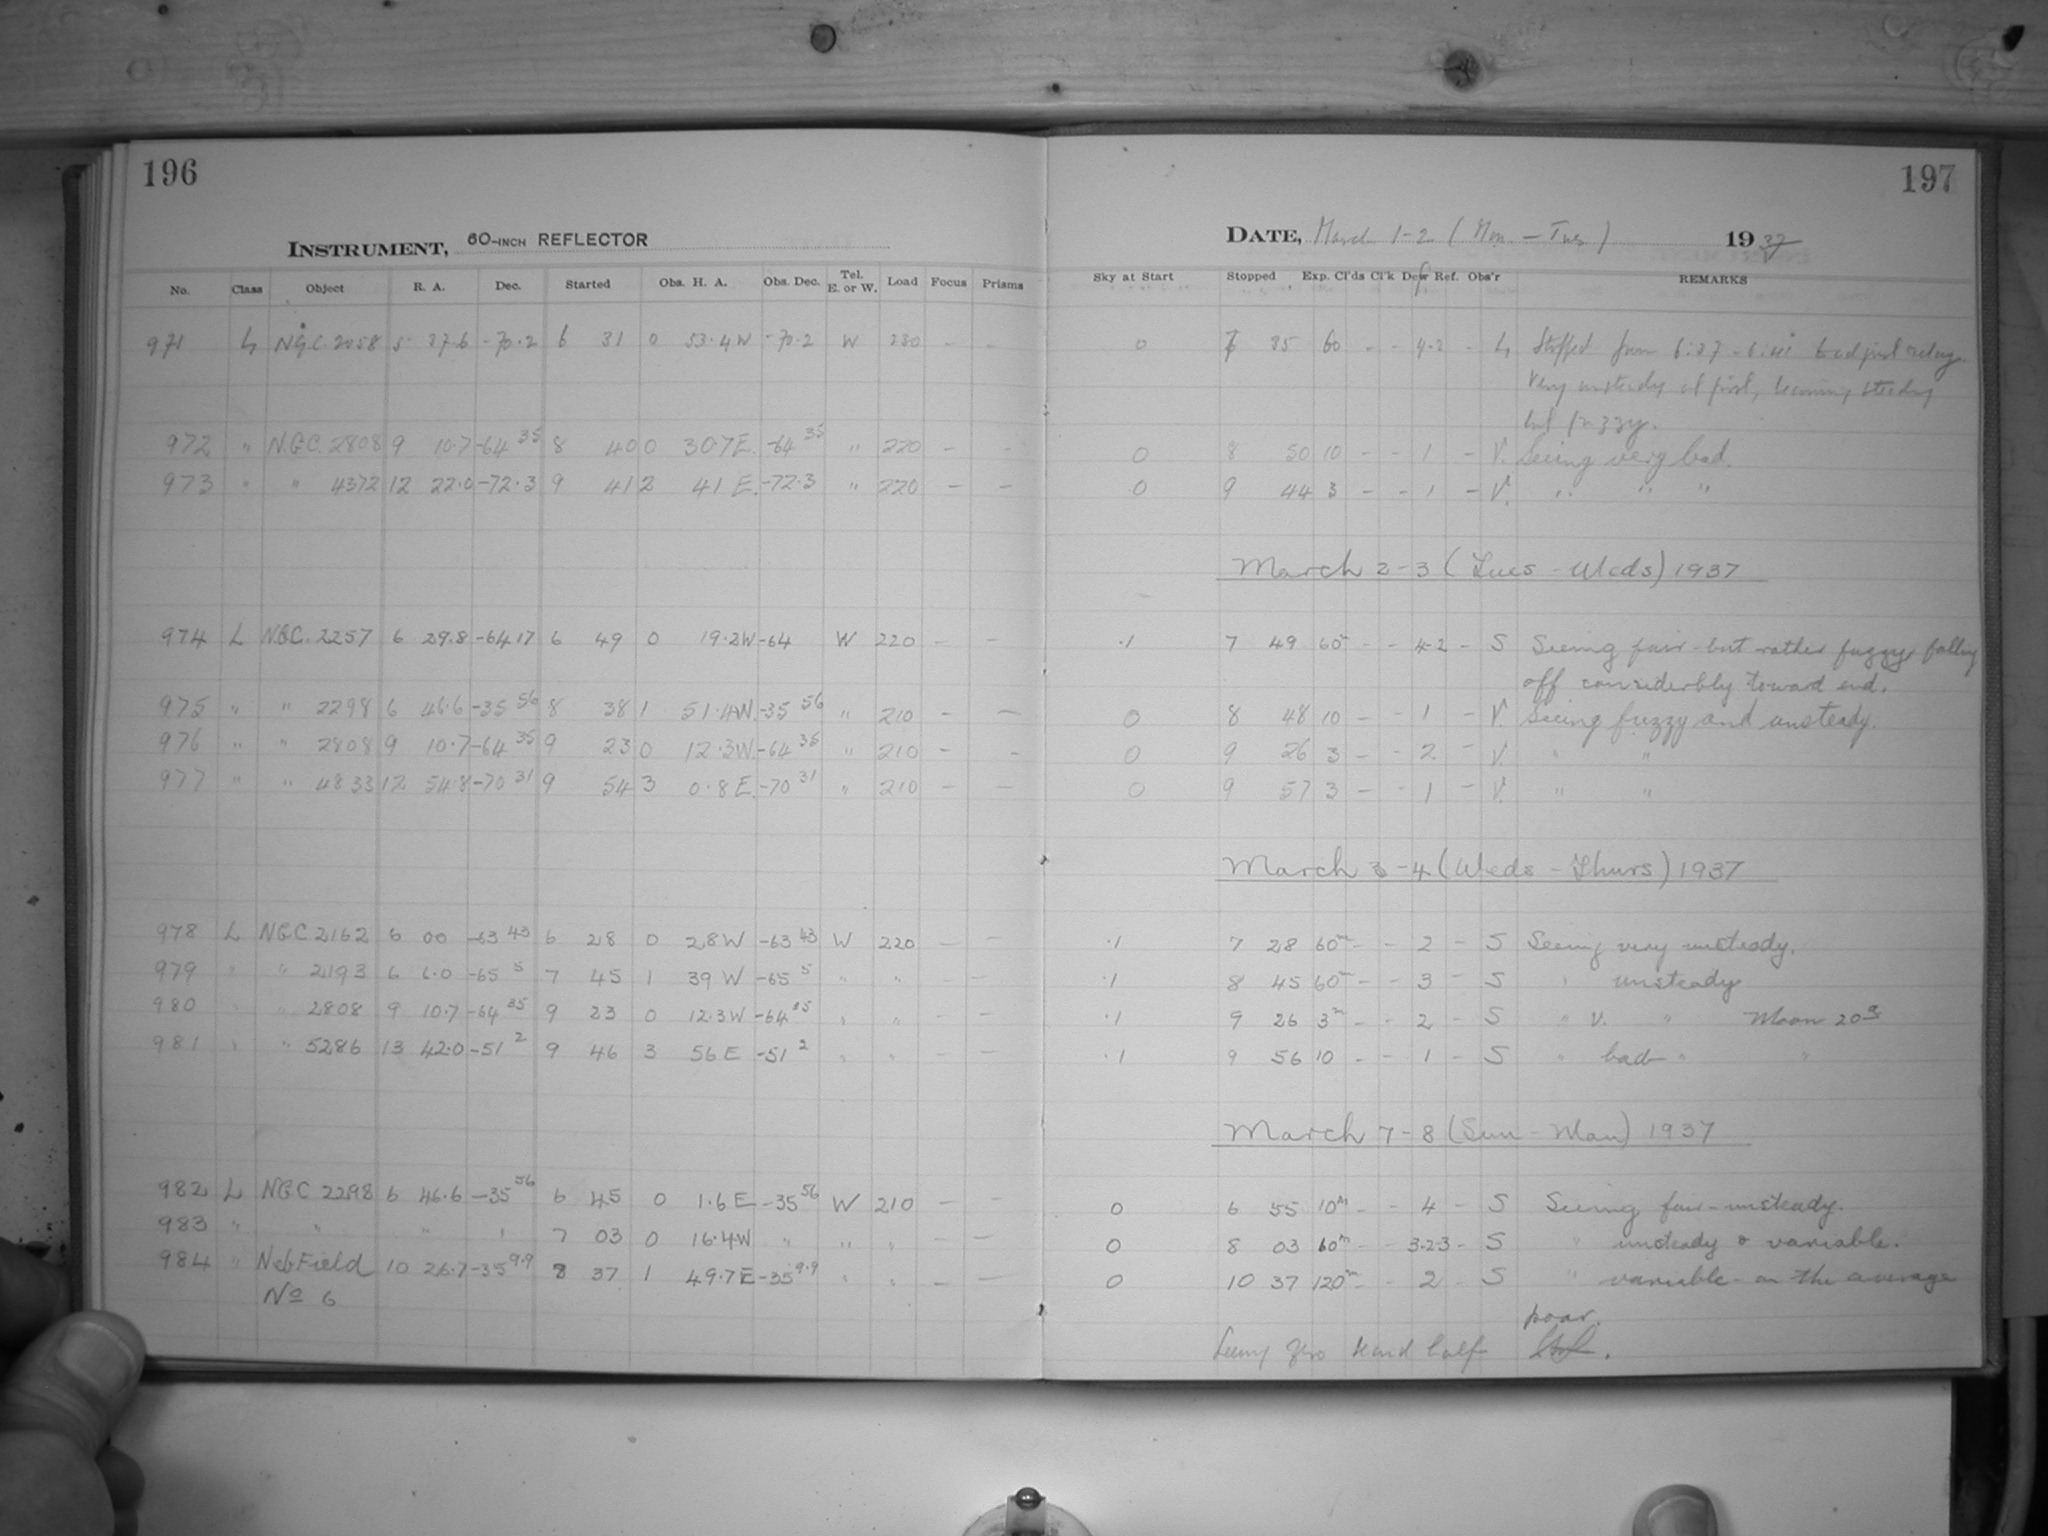 196
INSTRUMENT, 60-INCH REFLECTOR
No. Class Object R. A. Dec. Started Obs. H. A. Obs. Dec. Tel. E. or W. Load Focus Prisms
971 NGC 2058 5 37.6 -70.2 6 31 0 53.4W -70.2 W 230 - -
972 " N.G.C. 2808 9 10.7 -64 35 8 40 0 30.7E. -64 35 " 220 - -
973 " " 4372 12 22.0 -72.3 9 41 2 41 E. -72.3 " 220 - -
974 L NGC. 2257 6 29.8 -64 17 6 49 0 19.2W -64 W 220 - -
975 " " 2298 6 46.6 -35 56 8 38 1 51.4W. -35 56 " 210 - -
976 " " 2808 9 10.7 -64 35 9 23 0 12.3W. -64 35 " 210 - -
977 " " 4833 12 54.8 -70 31 9 54 3 0.8E. -70 31 " 210 - -
978 L NGC 2162 6 00 -63 43 6 28 0 28W -63 43 W 220 - -
979 " " 2193 6 6.0 -65 5 7 45 1 39 W -65 5 " " - -
980 " " 2808 9 10.7 -64 35 9 23 0 12.3W -64 35 " " - -
981 " " 5286 13 42.0 -51 2 9 46 3 56 E -51 2 " " - -
982 L NGC 2298 6 46.6 -35 56 6 45 0 1.6 E -35 56 W 210 - -
983 " " " " 7 03 0 16.4W " " " - -
984 " Neb Field 10 26.7 -35 9.9 8 37 1 49.7E -35 9.9 " " - -
No 6
197
DATE, March 1-2 (Mon - Tues) 1937
Sky at Start Stopped Exp. Cl'ds Cl'k Dew Ref. Obs'r REMARKS
0 7 35 60 - - 4-2 - Stopped from 6:37 - to adjust relay.
Very unsteady at first, becoming steady
but fuzzy.
0 8 50 10 - - 1 - V. Seeing very bad.
0 9 44 3 - - 1 - V. " " "
March 2-3 (Tues - Weds) 1937
.1 7 49 60m - - 4-2 - S Seeing fair - but rather fuzzy, falling
off considerbly toward end.
0 8 48 10 - - 1 - V. Seeing fuzzy and unsteady.
0 9 26 3 - - 2 - V. " "
0 9 57 3 - - 1 - V. " "
March 3-4 (Weds - Thurs) 1937
.1 7 28 60m - - 2 - S Seeing very unsteady.
.1 8 45 60m - - 3 - S " unsteady
.1 9 26 3m - - 2 - S " V. " Moon 20d
.1 9 56 10 - - 1 - S " bad " "
March 7-8 (Sun - Mon) 1937
0 6 55 10m - - 4 - S Seeing fair - unsteady.
0 8 03 60m - - 3-2-3 - S " unsteady & variable.
0 10 37 120m - - 2 - S " variable - on the average
poor.
Seeing zero second half